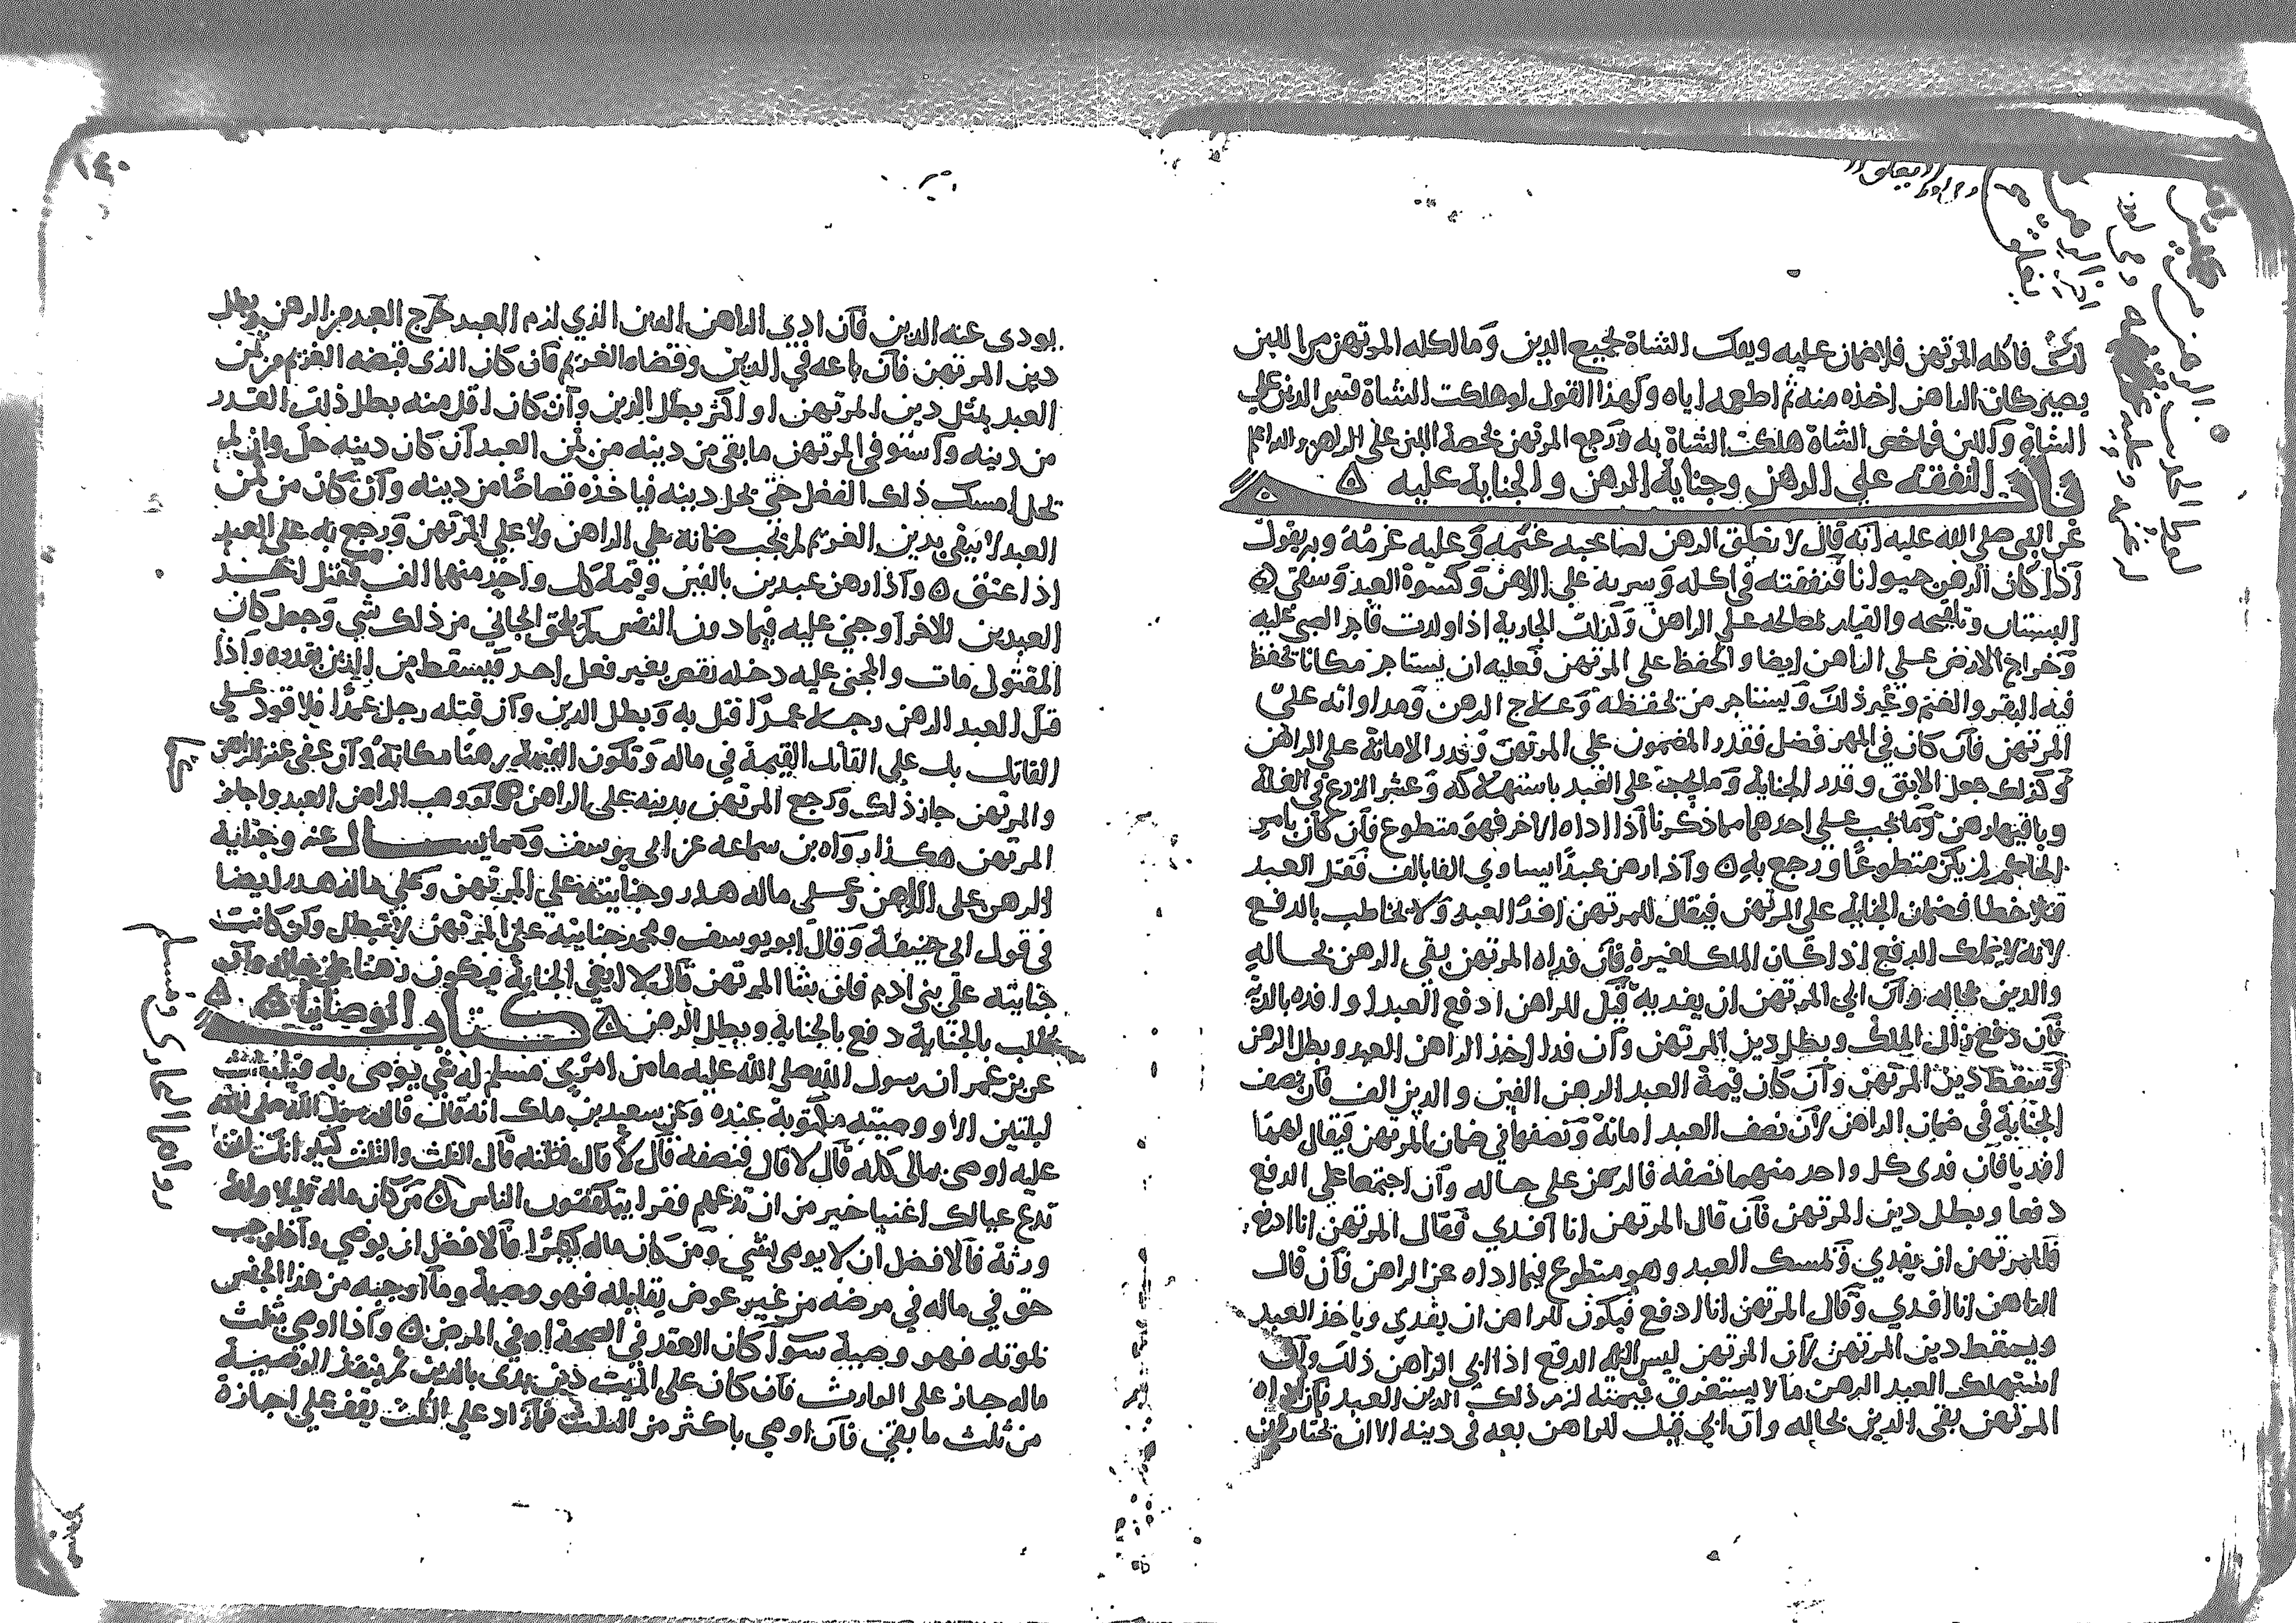 فاكله المرتهن فلا ضمان عليه ويفك الشاة بجميع الدين وما اكله المرتهن من اللبن
يصير كان الراهن اخذه منه ثم اطعمه اياه ولهذا القول لو هلكت الشاة قسم الدين علي
الشاة واللبن فما خص الشاة هلكت الشاة به ورجع المرتهن بحصة اللبن على الراهن والله اعلم
باب النفقة علي الرهن وجناية الرهن والجناية عليه
عن النبي صلى الله عليه انه قال لا تغلق الرهن لصاحبه غنمه وعليه غرمه وبه يقول
اذا كان الرهن حيوانا فنفقته في اكله وشربه على الراهن وكسوة العبد وسقي
البستان وتلقيحه والقيام بمصالحه على الراهن وكذلك الجارية اذا ولدت فاجر الصبي عليه
وخراج الارض على الراهن ايضا والحفظ على المرتهن فعليه ان يستاجر مكانا تحفظ
فيه البقر والغنم وغير ذلك ويستاجر من يحفظه وعلاج الرهن ومداواته على
المرتهن فان كان في الرهن فضل فقدر المضمون على المرتهن وقدر الامانة على الراهن
وكذلك جعل الابق وقدر الجناية وما يجب على العبد باستهلاكه وعشر الزرع في الغلة
وباقيها رهن وما يجب على احدهما مما ذكرنا اذا اداه الاخر فهو متطوع فان كان بامر
الحاكم لم يكن متطوعا ورجع به واذا رهن عبدا يساوي الفا بالف فقتل العبد
قتلا خطا فضمان الجناية على المرتهن فيقال للمرتهن افد العبد ولا يخاطب بالدفع
لانه لا يملك الدفع اذا كان الملك لغيره فان فداه المرتهن بقي الرهن بحاله
والدين بحاله وان ابي المرتهن ان يفديه قيل للراهن ادفع العبد او افده بالدية
فان دفع زال الملك وبطل دين المرتهن وان فدا اخذ الراهن العبد وبطل الرهن
وسقط دين المرتهن وان كان قيمة العبد الرهن الفين والدين الف فان نصف
الجناية في ضمان الراهن لان نصف العبد امانة ونصفها في ضمان المرتهن فيقال لهما
افديا فان فدى كل واحد منهما نصفه فالرهن على حاله وان اجتمعا على الدفع
دفعا وبطل دين المرتهن فان قال المرتهن انا افدي وقال المرتهن انا ادفع
فللمرتهن ان يفدي ويمسك العبد وهو متطوع فيما اداه عن الراهن فان قال
الراهن انا افدي وقال المرتهن انا ادفع فيكون للراهن ان يفدي وياخذ العبد
ويسقط دين المرتهن لان المرتهن ليس اليه الدفع اذا ابى الراهن ذلك وان
استهلك العبد الرهن مالا يستغرق قيمته لزم ذلك الدين العبد فان اداه
المرتهن بقي الدين بحاله وان ابي قيل للراهن بعه في دينه الا ان تختار ان
١٤٠
يودى عنه الدين فان ادى الراهن الدين الذي لزم العبد خرج العبد من الرهن وبطل
دين المرتهن فان باعه في الدين وقضاه الغريم فان كان الذى قبضه الغريم من ثمن
العبد بمثل دين المرتهن او اكثر بطل الدين وان كان اقل منه بطل ذلك القدر
من دينه واستوفى المرتهن ما بقي من دينه من ثمن العبد ان كان دينه حل وان لم
يحل امسك ذلك الفضل حتى يحل دينه فياخذه قصاصا من دينه وان كان من ثمن
العبد لا يبقى بدين الغريم لم يجب ضمانه على الراهن ولا على المرتهن ورجع به على العبد
اذا عتق واذا رهن عبدين بالفين وقيمة كل واحد منهما الف فقتل احد
العبدين للاخر او جنى عليه فيما دون النفس لم يلحق الجاني من ذلك شي وجعل كان
المقتول مات والمجنى عليه دخله نقص بغير فعل احد فيسقط من الدين بقدره واذا
قتل العبد الرهن رجلا عمدا قتل به وبطل الدين وان قتله رجل عمدا فلا قود على
القاتل بل على القاتل القيمة في ماله وتكون القيمة رهنا مكانه وان عفى عنه الراهن
والمرتهن جاز ذلك ورجع المرتهن بدينه على الراهن ولو وهب الراهن العبد واجاز
المرتهن هكذا رواه بن سماعة عن ابي يوسف ومما يسال عنه وجناية
الرهن على الراهن وعلى ماله هدر وجنايته على المرتهن وعلى ماله هدر ايضا
في قول ابى حنيفة وقال ابو يوسف ومحمد جنايته على المرتهن لا تبطل وان كانت
جنايته على بنى ادم فان شا المرتهن قال لا ابغى الجناية فيكون رهنا على حاله وان
طلب بالجناية دفع بالجناية وبطل الرهن كتاب الوصايا
عن بن عمر ان رسول الله صلى الله عليه ما من امرى مسلم له شي يوصى به يبيت
ليلتين الا ووصيته مكتوبة عنده وعن سعد بن ملك انه قال قال رسول الله صلى الله
عليه اوصى بمالى كله قال لا قال فنصفه قال لا قال فثلثه قال الثلث والثلث كثير انك ان
تدع عيالك اغنيا خير من ان تدعهم فقرا يتكففون الناس من كان ماله قليلا وله
ورثة فالافضل ان لا يوصى بشي ومن كان ماله كثيرا فالافضل ان يوصي واذا وجب
حق في ماله في مرضه من غير عوض يقابله فهو وصية وما اوجبه من هذا الجنس
لموته فهو وصية سوآ كان العقد في الصحة او في المرض واذا اوصى بثلث
ماله جاز على الوارث فان كان على الميت دين بدى بالدين ثم ينفذ الوصية
من ثلث ما بقي فان اوصي باكثر من الثلث فما زاد على الثلث يقف على اجازة
رواه البخارى ومسلم